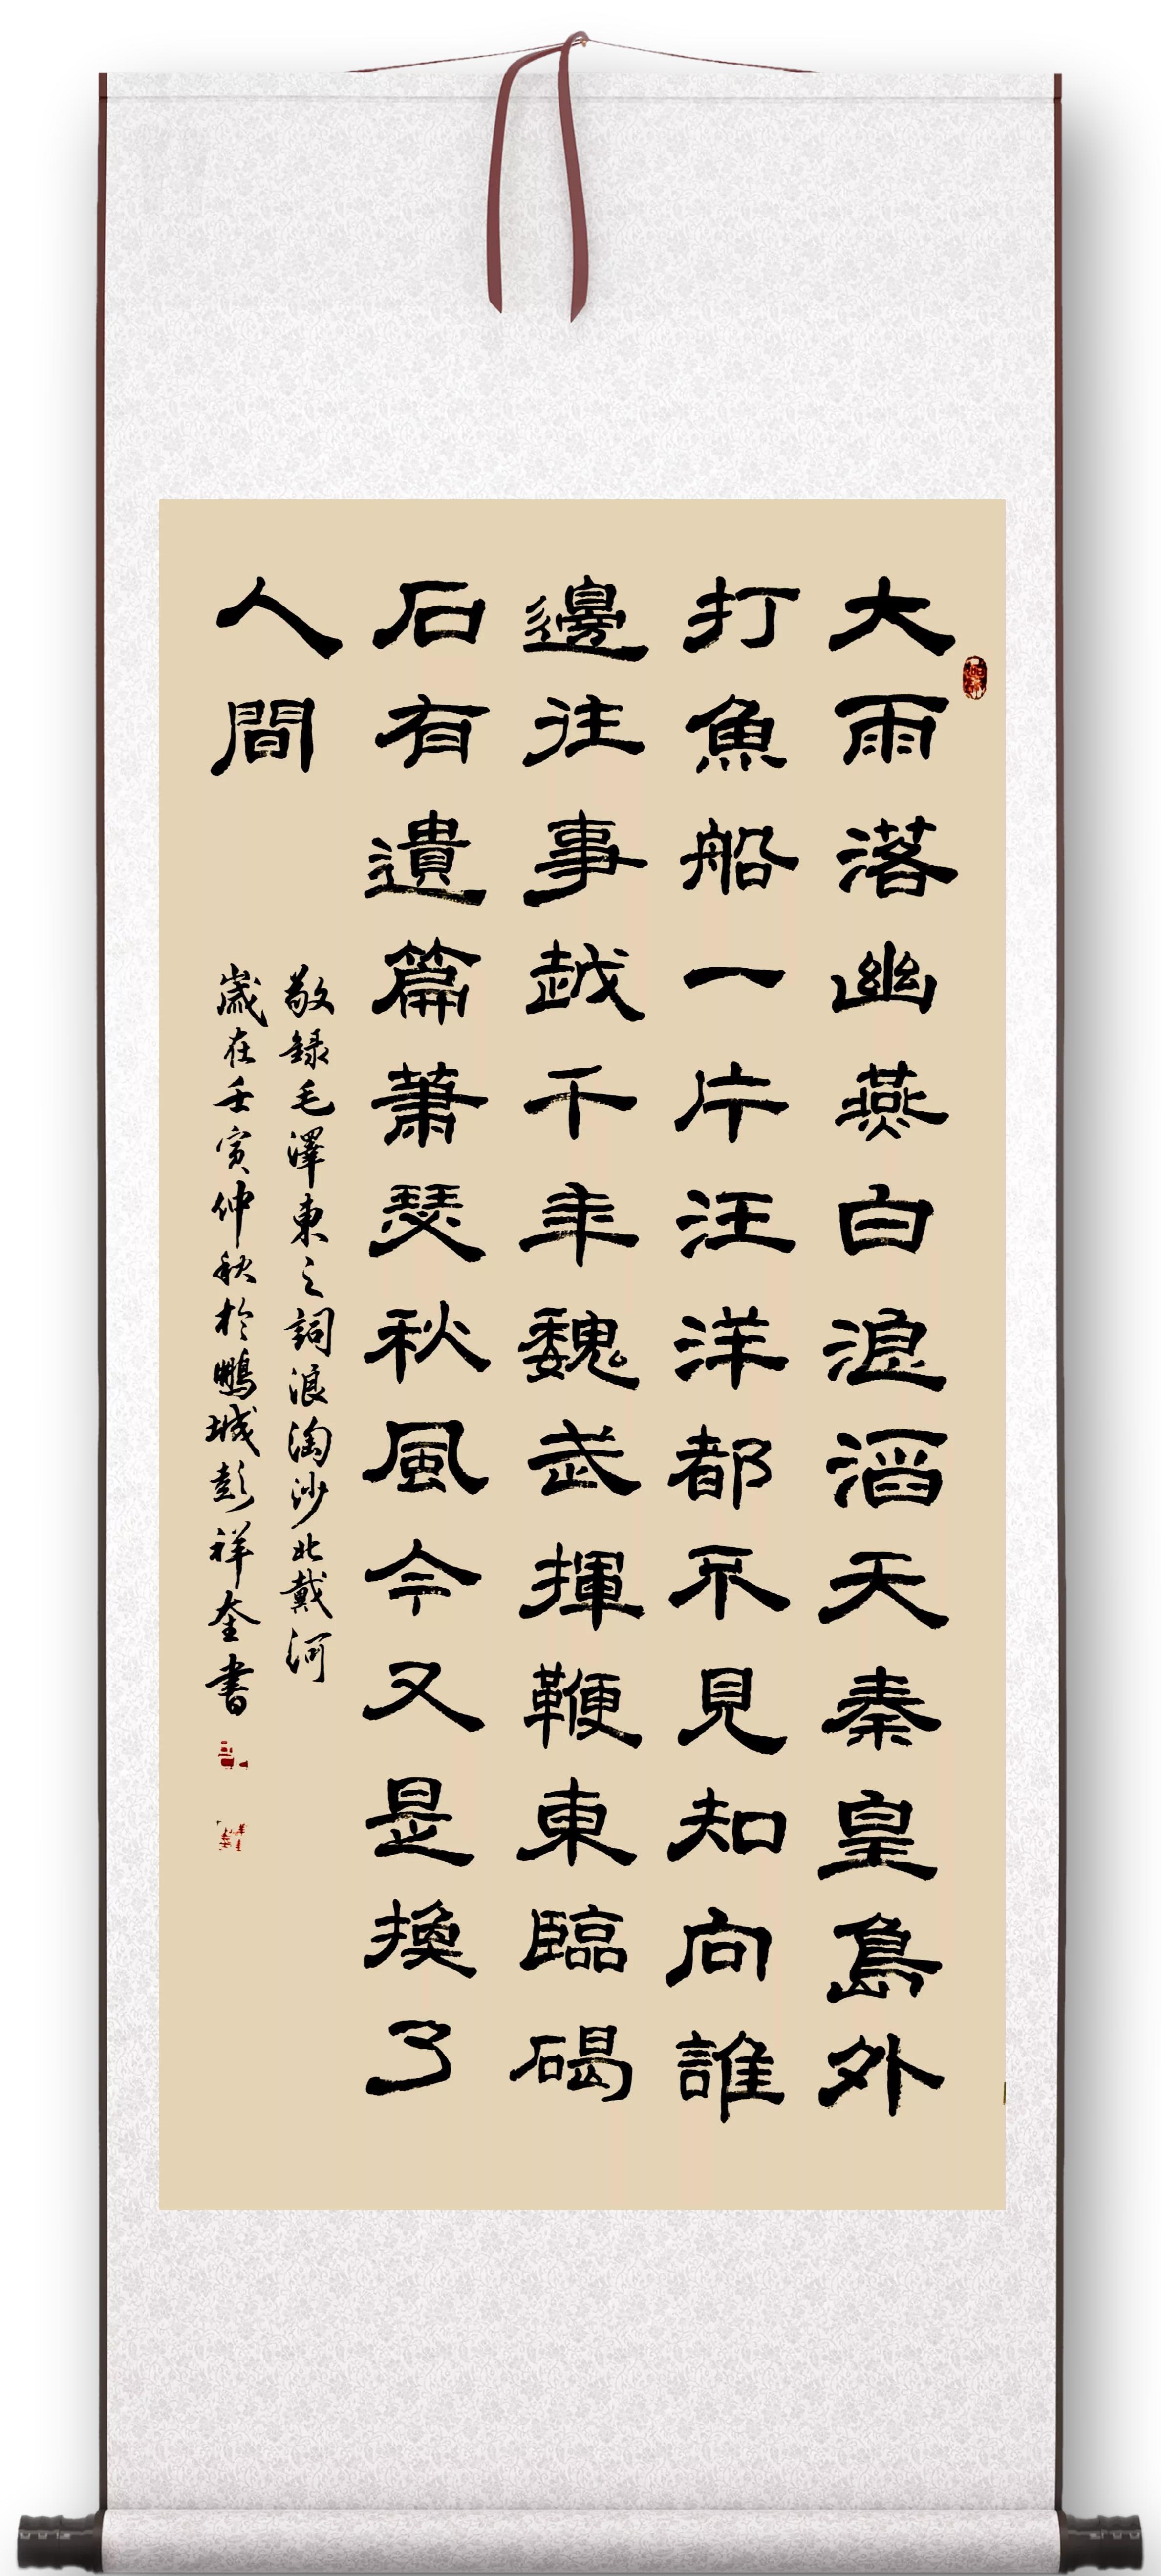 大雨落幽燕白浪滔天秦皇島外
打魚船一片汪洋都不見知向誰
邊往事越千年魏武揮鞭東臨碣
石有遺篇蕭瑟秋風今又是換了
人間
敬録毛澤東之詞浪淘沙北戴河
歲在壬寅仲秋於鵬城彭祥奎書